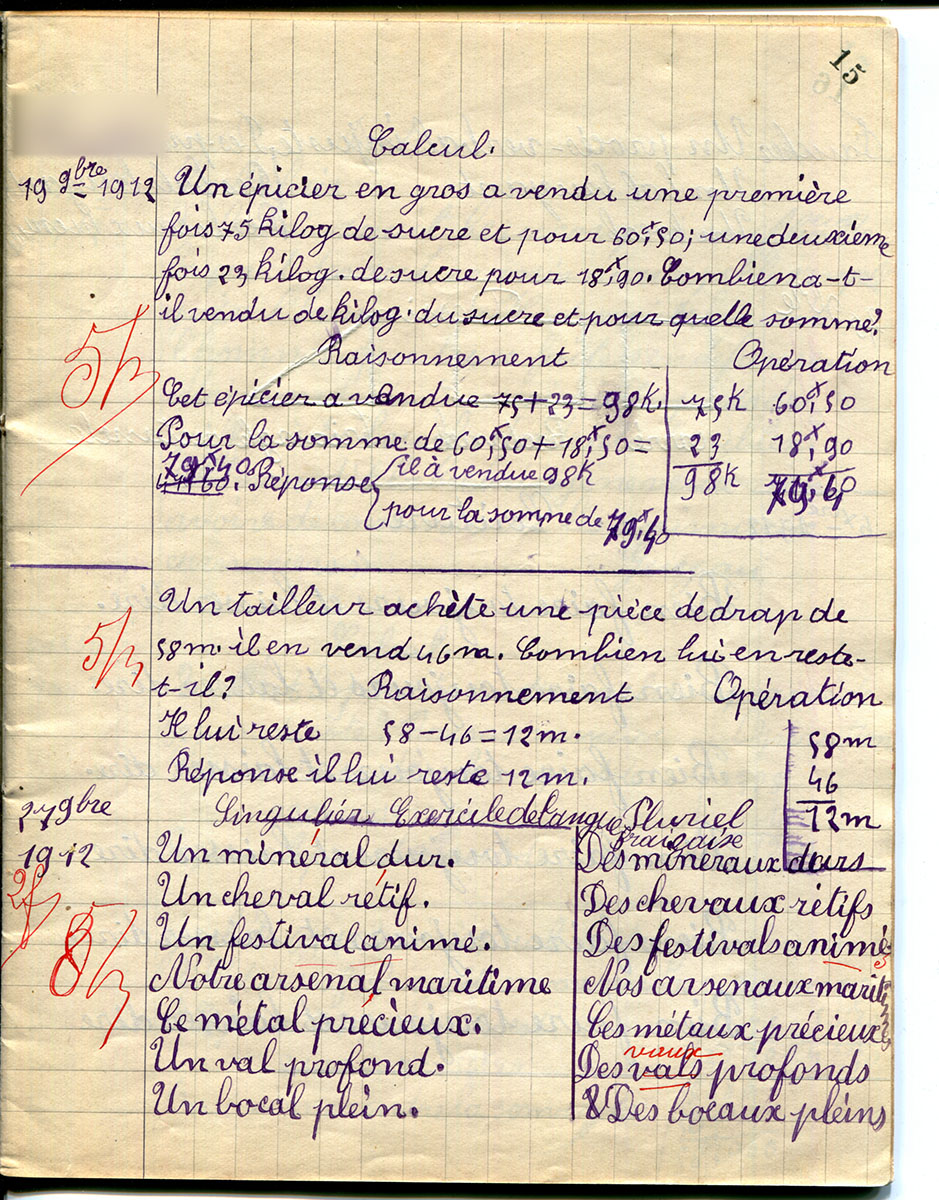 15
Calcul.
19 9bre 1912 Un épicier en gros a vendu une première
fois 75 kilog de sucre et pour 60f,50; une deuxième
fois 23 kilog. de sucre pour 18f,90. Combien a-t-
il vendu de kilog. du sucre et pour quelle somme?
Raisonnement Opération
Cet épicier a vendue 75+23=98K 75K 60f,50
Pour la somme de 60f,50+18f,50= 23 18f,90
79f,40. Réponse il à vendue 98K 98K
pour la somme de 79f,40
5/
Un tailleur achète une pièce de drap de
58m. il en vend 46m. Combien lui en reste-
t-il? Raisonnement Opération
Il lui reste 58-46=12m. 58m
Réponse il lui reste 12m. 46
12m
5/
27 9bre
1912
Singulier Exercice de langue française Pluriel
Un minéral dur. Des minéraux durs
Un cheval rétif. Des chevaux rétifs
Un festival animé. Des festivals animés
Notre arsenal maritime Nos arsenaux marit
Ce métal précieux. Ces métaux précieux
vaux
Un val profond. Des vals profonds
Un bocal plein. Des bocaux pleins
2f